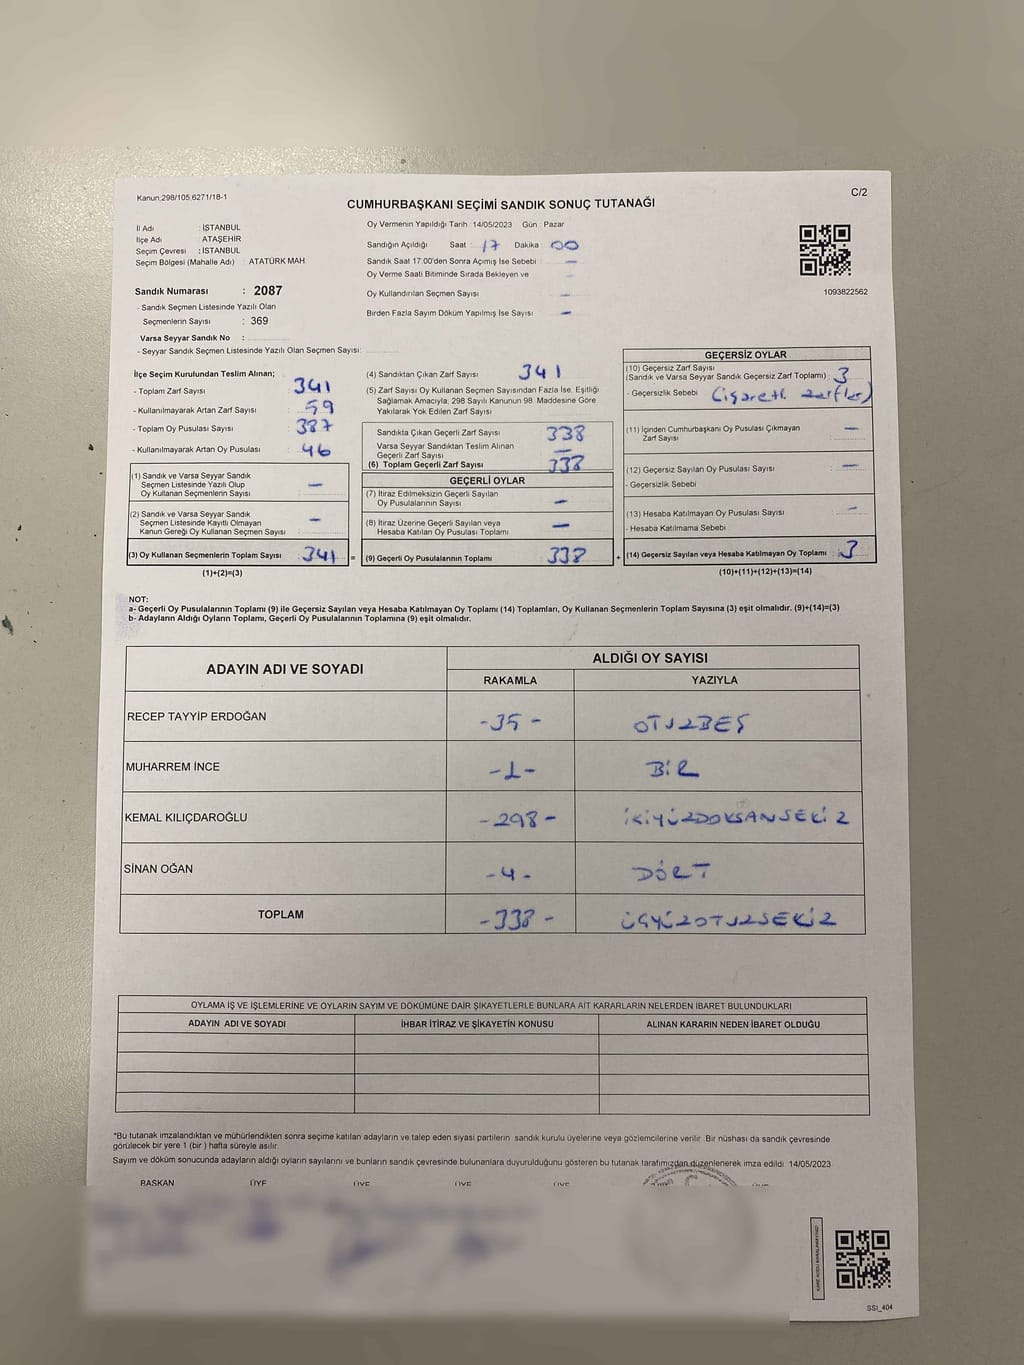 Kanun;298/105.6271/18-1
C/2
CUMHURBAŞKANI SEÇİMİ SANDIK SONUÇ TUTANAĞI
İl Adı : İSTANBUL
İlçe Adı ATAŞEHİR
Seçim Çevresi : İSTANBUL
Seçim Bölgesi (Mahalle Adı) ATATÜRK MAH.
Oy Vermenin Yapıldığı Tarih 14/05/2023 Gün Pazar
Sandığın Açıldığı Saat : 17 Dakika : 00
Sandık Saat 17.00'den Sonra Açımış İse Sebebi –
Oy Verme Saati Bitiminde Sırada Bekleyen ve
Oy Kullandırılan Seçmen Sayısı –
Birden Fazla Sayım Döküm Yapılmış İse Sayısı –
1093822562
Sandık Numarası : 2087
- Sandık Seçmen Listesinde Yazılı Olan
Seçmenlerin Sayısı : 369
Varsa Seyyar Sandık No :
- Seyyar Sandık Seçmen Listesinde Yazılı Olan Seçmen Sayısı:
İlçe Seçim Kurulundan Teslim Alınan;
- Toplam Zarf Sayısı 341
- Kullanılmayarak Artan Zarf Sayısı : 59
- Toplam Oy Pusulası Sayısı : 387
- Kullanılmayarak Artan Oy Pusulası : 46
(1) Sandık ve Varsa Seyyar Sandık
Seçmen Listesinde Yazılı Olup
Oy Kullanan Seçmenlerin Sayısı : –
(2) Sandık ve Varsa Seyyar Sandık
Seçmen Listesinde Kayıtlı Olmayan
Kanun Gereği Oy Kullanan Seçmen Sayısı : –
(3) Oy Kullanan Seçmenlerin Toplam Sayısı : 341 =
(1)+(2)=(3)
(4) Sandıktan Çıkan Zarf Sayısı : 341
(5) Zarf Sayısı Oy Kullanan Seçmen Sayısından Fazla İse. Eşitliği
Sağlamak Amacıyla, 298 Sayılı Kanunun 98. Maddesine Göre
Yakılarak Yok Edilen Zarf Sayısı
Sandıkta Çıkan Geçerli Zarf Sayısı : 338
Varsa Seyyar Sandıktan Teslim Alınan
Geçerli Zarf Sayısı : –
(6) Toplam Geçerli Zarf Sayısı : 338
GEÇERLİ OYLAR
(7) İtiraz Edilmeksizin Geçerli Sayılan
Oy Pusulalarının Sayısı : –
(8) İtiraz Üzerine Geçerli Sayılan veya
Hesaba Katılan Oy Pusulası Toplamı : –
(9) Geçerli Oy Pusulalarının Toplamı 338 +
GEÇERSİZ OYLAR
(10) Geçersiz Zarf Sayısı
(Sandık ve Varsa Seyyar Sandık Geçersiz Zarf Toplamı) : 3
- Geçersizlik Sebebi : (işaretli zarflar)
(11) İçinden Cumhurbaşkanı Oy Pusulası Çıkmayan
Zarf Sayısı : –
(12) Geçersiz Sayılan Oy Pusulası Sayısı : –
- Geçersizlik Sebebi :
(13) Hesaba Katılmayan Oy Pusulası Sayısı : –
- Hesaba Katılmama Sebebi
(14) Geçersiz Sayılan veya Hesaba Katılmayan Oy Toplamı : 3
(10)+(11)+(12)+(13)=(14)
NOT:
a- Geçerli Oy Pusulalarının Toplamı (9) ile Geçersiz Sayılan veya Hesaba Katılmayan Oy Toplamı (14) Toplamları, Oy Kullanan Seçmenlerin Toplam Sayısına (3) eşit olmalıdır. (9)+(14)=(3)
b- Adayların Aldığı Oyların Toplamı, Geçerli Oy Pusulalarının Toplamına (9) eşit olmalıdır.
ADAYIN ADI VE SOYADI ALDIĞI OY SAYISI
RAKAMLA YAZIYLA
RECEP TAYYİP ERDOĞAN -35- OTUZBEŞ
MUHARREM İNCE -1- BİR
KEMAL KILIÇDAROĞLU -298- İKİYÜZDOKSANSEKİZ
SİNAN OĞAN -4- DÖRT
TOPLAM -338- ÜÇYÜZOTUZSEKİZ
OYLAMA İŞ VE İŞLEMLERİNE VE OYLARIN SAYIM VE DÖKÜMÜNE DAİR ŞİKAYETLERLE BUNLARA AİT KARARLARIN NELERDEN İBARET BULUNDUKLARI
ADAYIN ADI VE SOYADI İHBAR İTİRAZ VE ŞİKAYETİN KONUSU ALINAN KARARIN NEDEN İBARET OLDUĞU
*Bu tutanak imzalandıktan ve mühürlendikten sonra seçime katılan adayların ve talep eden siyasi partilerin sandık kurulu üyelerine veya gözlemcilerine verilir. Bir nüshası da sandık çevresinde
görülecek bir yere 1 (bir ) hafta süreyle asılır.
Sayım ve döküm sonucunda adayların aldığı oyların sayılarını ve bunların sandık çevresinde bulunanlara duyurulduğunu gösteren bu tutanak tarafımızdan düzenlenerek imza edildi 14/05/2023
BAŞKAN ÜYE ÜYE ÜYE ÜYE
SSI_404